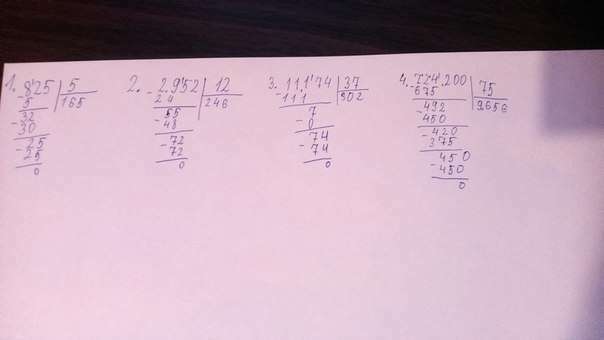 1. 8'25 | 5
- 5 | 165
32
- 30
25
- 25
0
2. 2.9'52 | 12
- 24 | 246
55
- 48
72
- 72
0
3. 11.1'74 | 37
- 111 | 302
7
- 0
74
- 74
0
4. 724'.200 | 75
- 675 | 9656
492
- 450
420
- 375
450
- 450
0